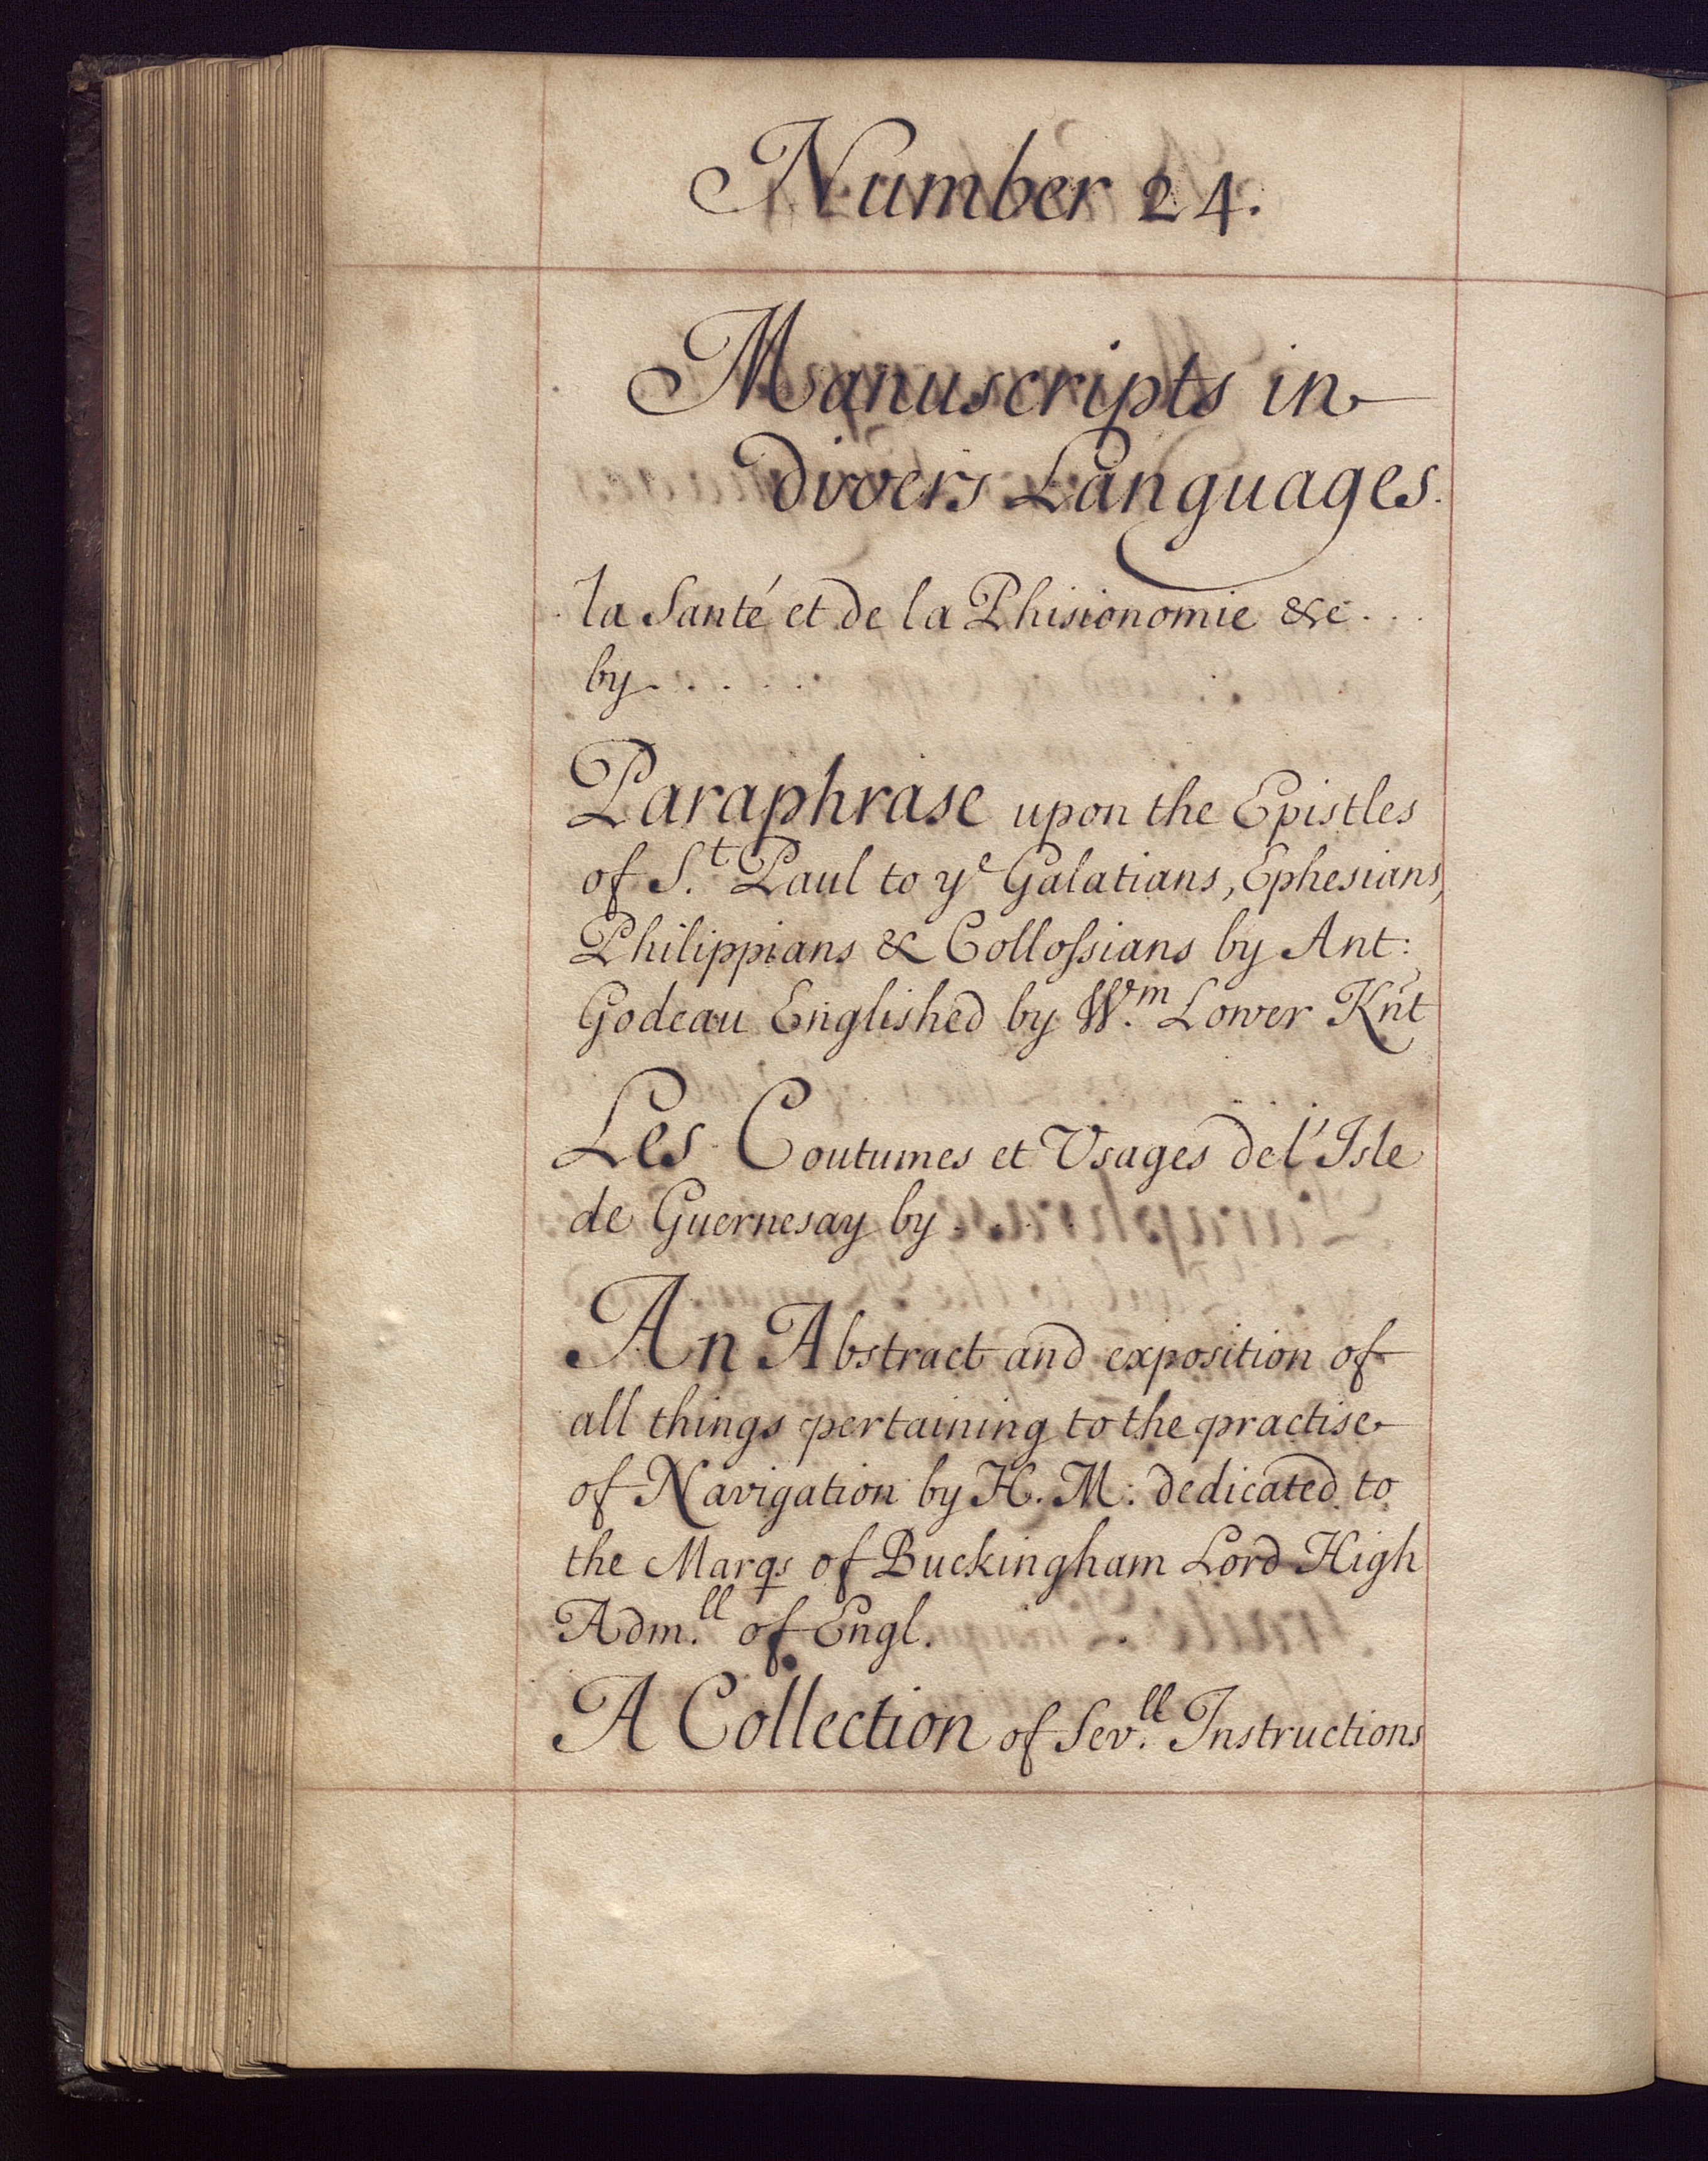 Number 24.
Manuscripts in
divers Languages.
la Santé et de la Phisionomie &c . . .
by . . . . .
Paraphrase upon the Epistles
of S.t Paul to ye Galatians, Ephesians,
Philippians & Collossians by Ant:
Godeau Englished by W.m Lower Knt
Les Coutumes et Usages de l'Isle
de Guernesay by . . . .
An Abstract and exposition of
all things pertaining to the practise
of Navigation by H. M: dedicated to
the Marqs of Buckingham Lord High
Adm.ll of Engl.
A Collection of Sev.ll Instructions